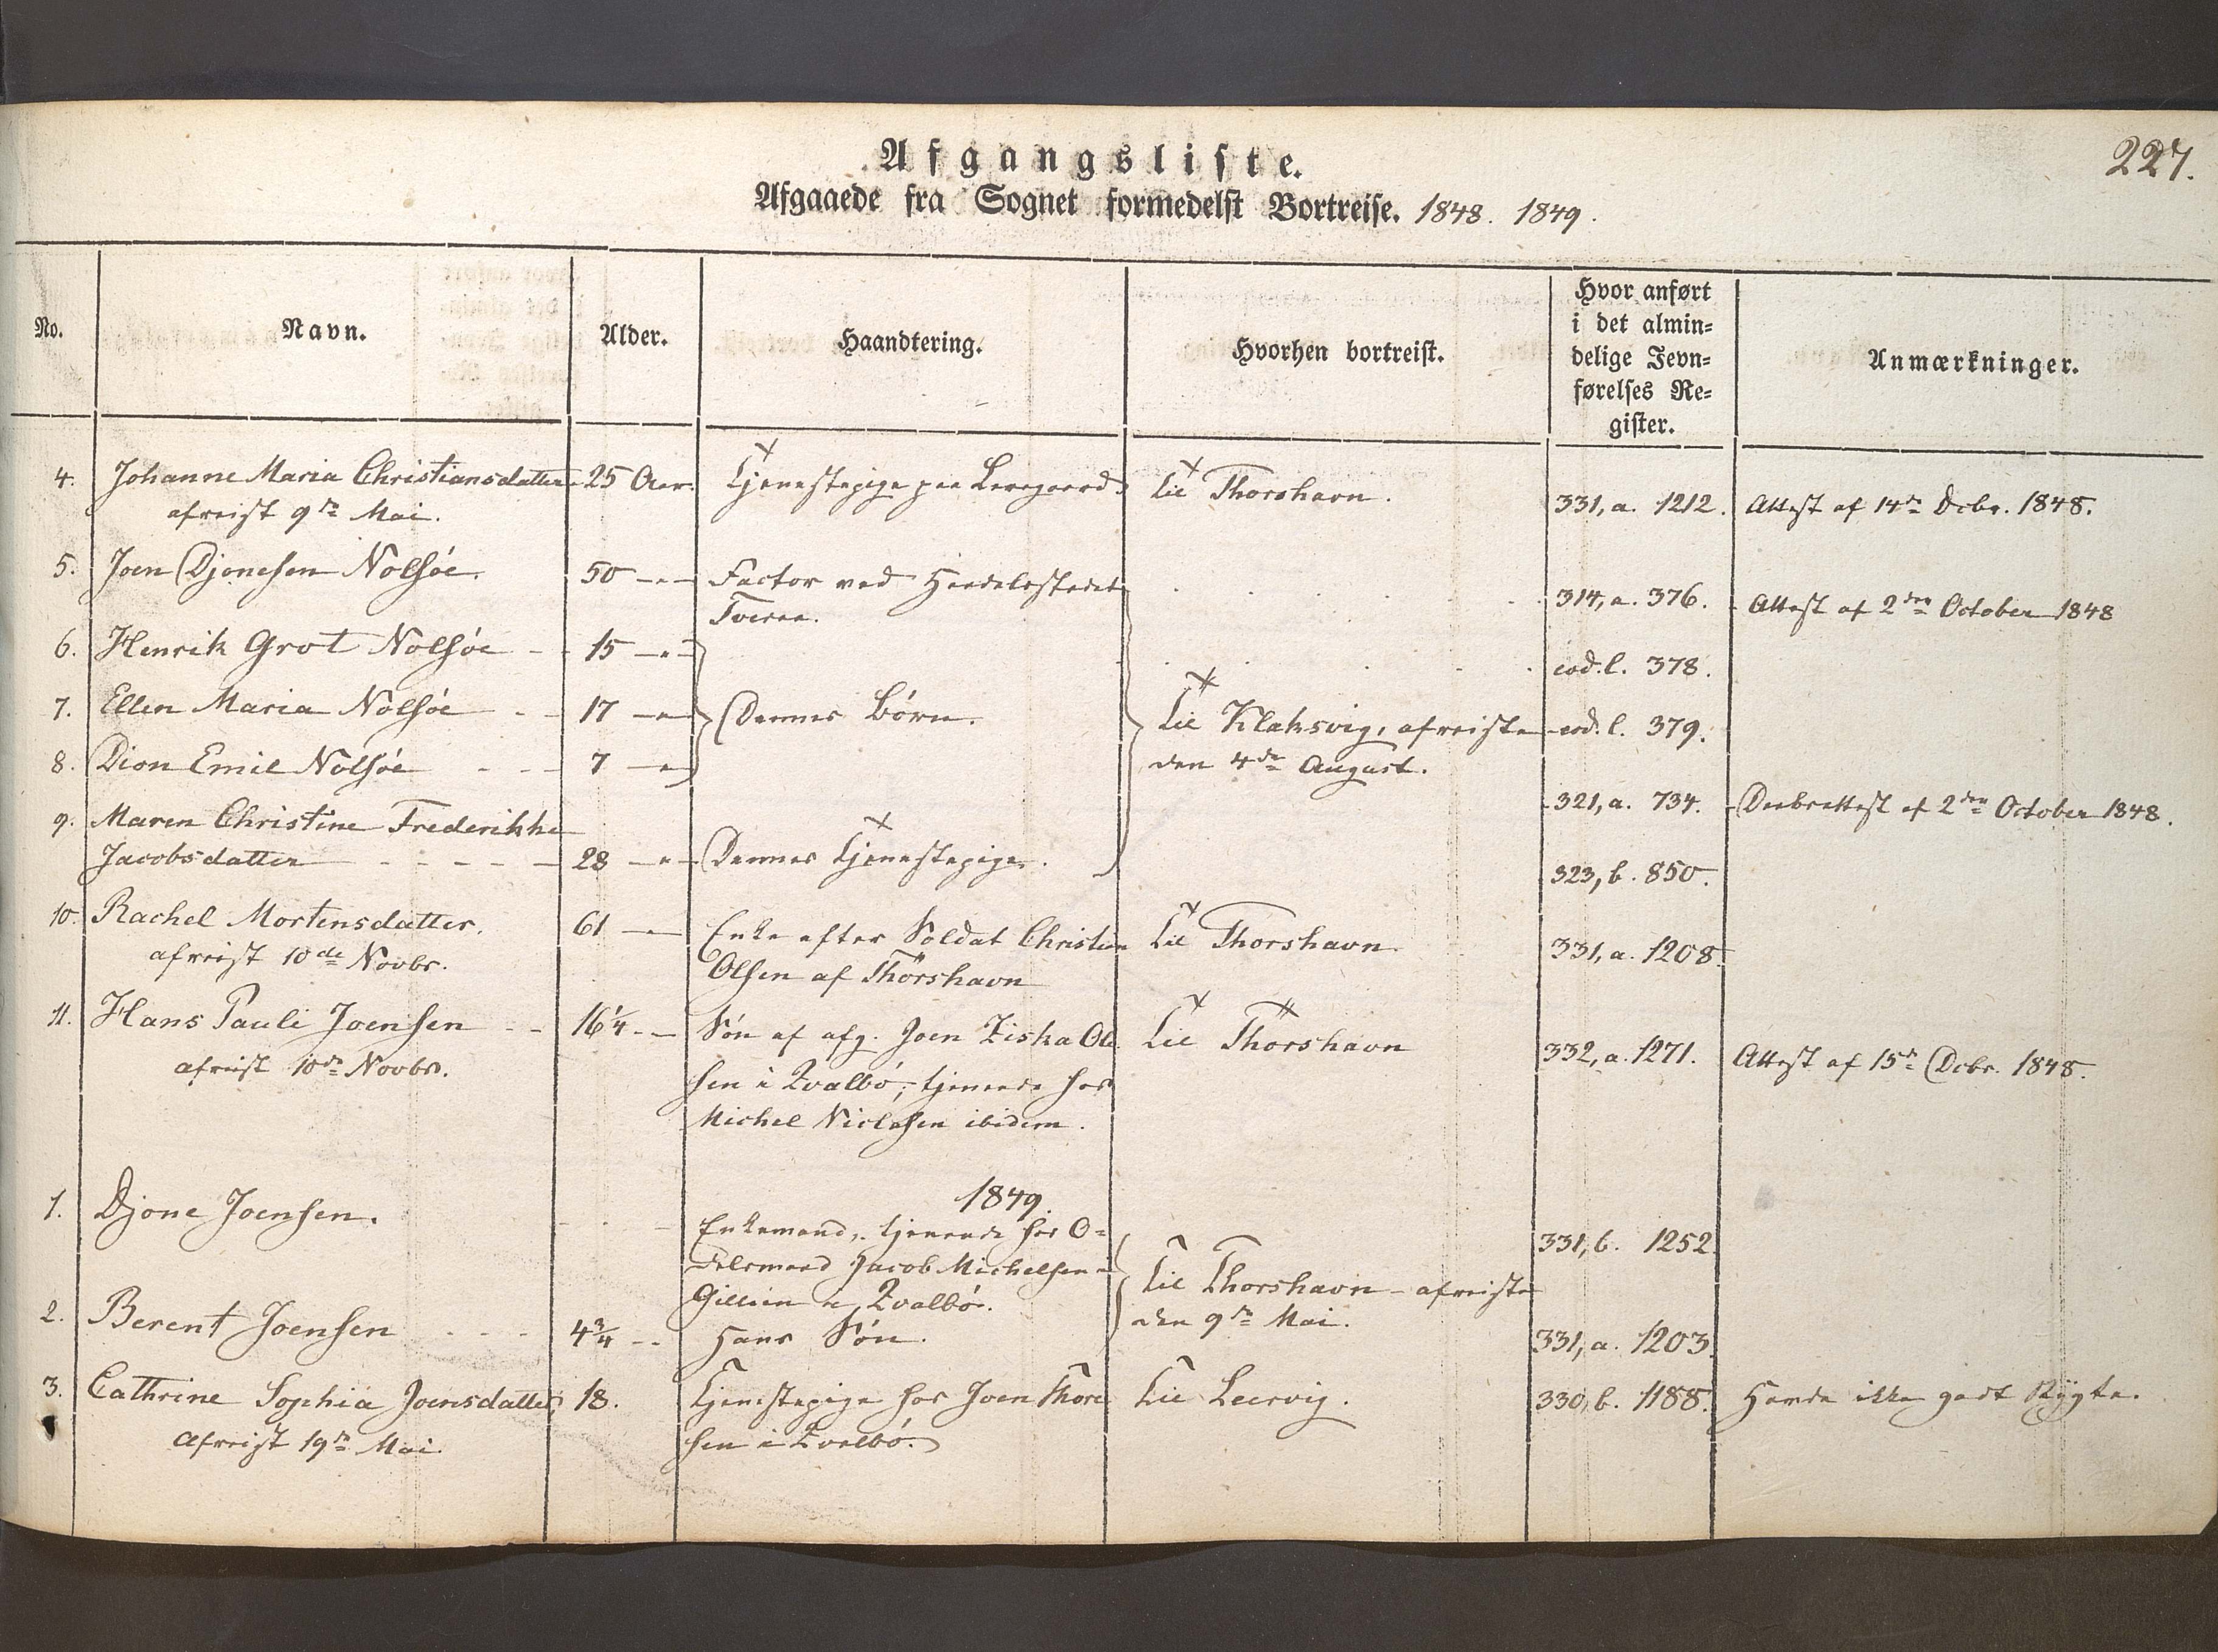 227.
Afgangsliste.
Afgaaede fra Sognet formedelst Bortreise. 1848. 1849.
No.
Navn.
Alder.
Haandtering.
Hvorhen bortreist.
Hvor anført
i det almin=
delige Jevn=
førelses Re=
gister.
Anmærkninger.
4. Johanne Maria Christiansdatter 25 Aar. Tjenestepige paa Til Thorshavn. 331, a. 1212. Attest af 14de Dcbr. 1848.
afreist 9de Mai.
5. Joen Djonesen Nolsöe. 50 -"- Factor ved Handelsstedet 314, a. 376. Attest af 2den October 1848
Tveraa.
6. Henrik Grot Nolsöe - - 15 -"- eod. l. 378.
7. Ellen Maria Nolsöe - - 17 -"- Dennes Börn. Til Klaksvig, afreiste eod. l. 379.
8. Dion Emil Nolsöe - - - 7 -"- den 4de August.
321, a. 734. Daabsattest af 2den October 1848.
9. Maren Christine Frederikke
Jacobsdatter - - - - - 28 -"- Dennes Tjenestepige. 323, b. 850.
10. Rachel Mortensdatter. 61 -"- Enke efter Soldat Christian Til Thorshavn 331, a. 1208.
afreist 10de Novbr. Olsen af Thorshavn
11. Hans Pauli Joensen - - 16 1/4 - - Sön af afg. Joen Ziska Ol- Til Thorshavn 332, a. 1271. Attest af 15de Dcbr. 1848.
afreist 10de Novbr. sen i Qvalbö, tjenende hos
Michel Niclasen ibidem.
1849.
1. Djone Joensen. Enkemand, tjenende hos O=
delsmand Jacob Michelsen i 331, b. 1252.
Gillium i Qvalbö. Til Thorshavn - afreiste
den 9de Mai.
2. Berent Joensen - - - 4 3/4 - - Hans Sön. 331, a. 1203.
3. Cathrine Sophia Joensdatter 18. Tjenestepige hos Joen Thore Til Leervig. 330, b. 1188. Havde ikke godt Rygte.
Afreist 19de Mai. sen i Qvalbö.